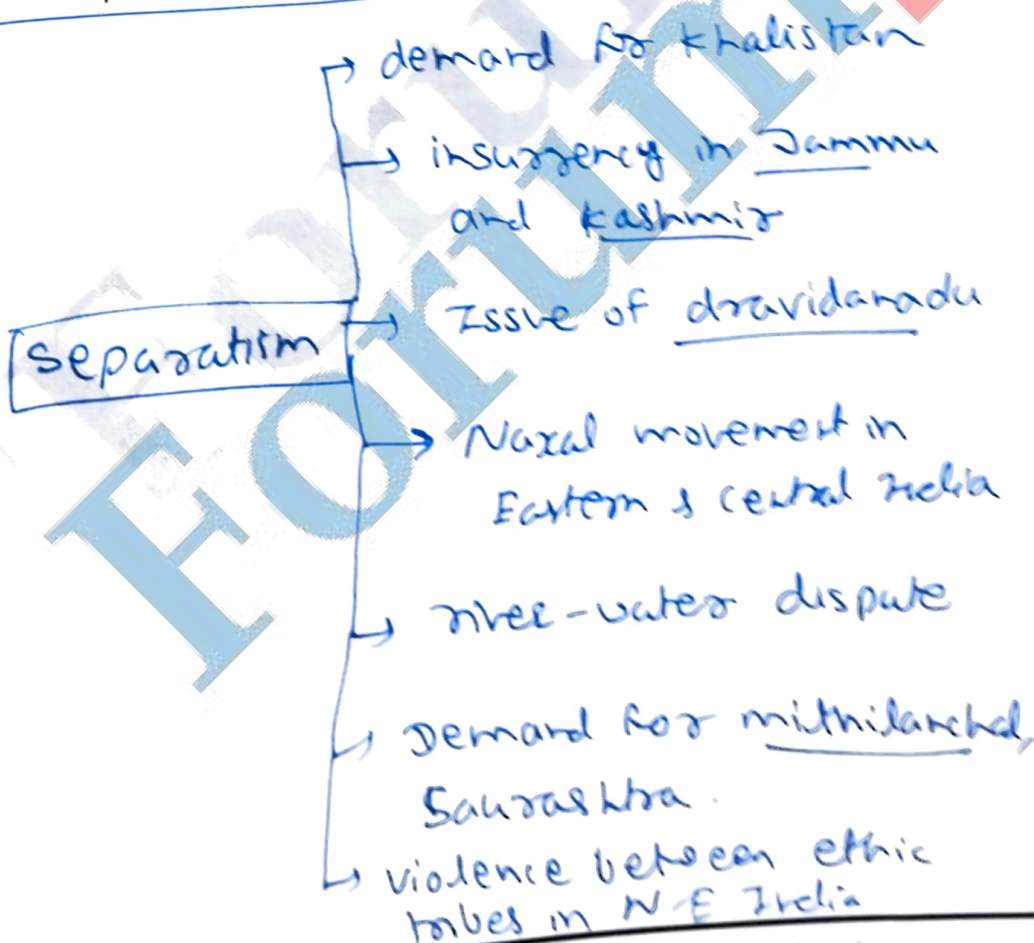 demand for Khalistan
insurgency in Jammu
and Kashmir
Issue of dravidanadu
Separatism
Naxal movement in
Eastern & central India
river-water dispute
Demand for mithilanchal,
Saurashtra.
violence between ethic
tribes in N-E India
Forum
Forum